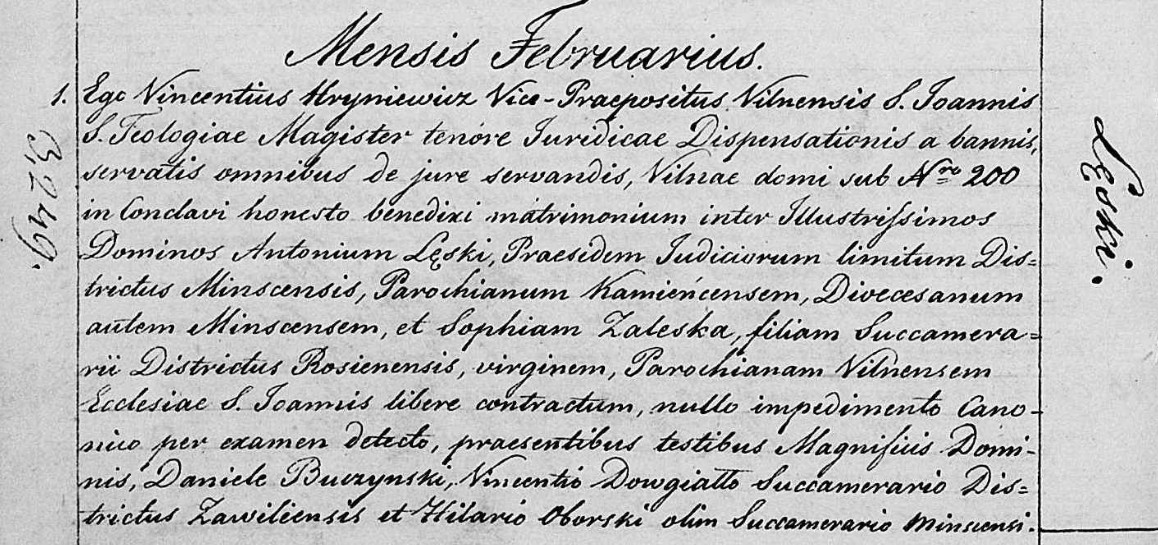 Mensis Februarius.
1. Ego Vincentius Hryniewicz Vice-Praepositus Vilnensis S. Joannis
S. Teologiae Magister tenóre Juridicae Dispensationis a bannis,
servatis omnibus de jure servandis, Vilnae domi sub Nro 200
in Conclavi honesto benedixi matrimonium inter Illustrissimos
Dominos Antonium Lęski, Praesidem Judiciorum limitum Dis=
trictus Minscensis, Parochianum Kamieńcensem, Dioecesanum
autem Minscensem, et Sophiam Zaleska, filiam Succamera=
rii Districtus Rosienensis, virginem, Parochianam Vilnensem
Ecclesiae S. Joannis libere contractum, nullo impedimento Cano=
nico per examen detecto, praesentibus testibus Magnificis Domi-
nis, Daniele Buczynski, Vincentio Dowgiatto Succamerario Dis=
trictus Zawileensis et Hilario Oborski olim Succamerario Minscensi.
3,249.
Lęski.